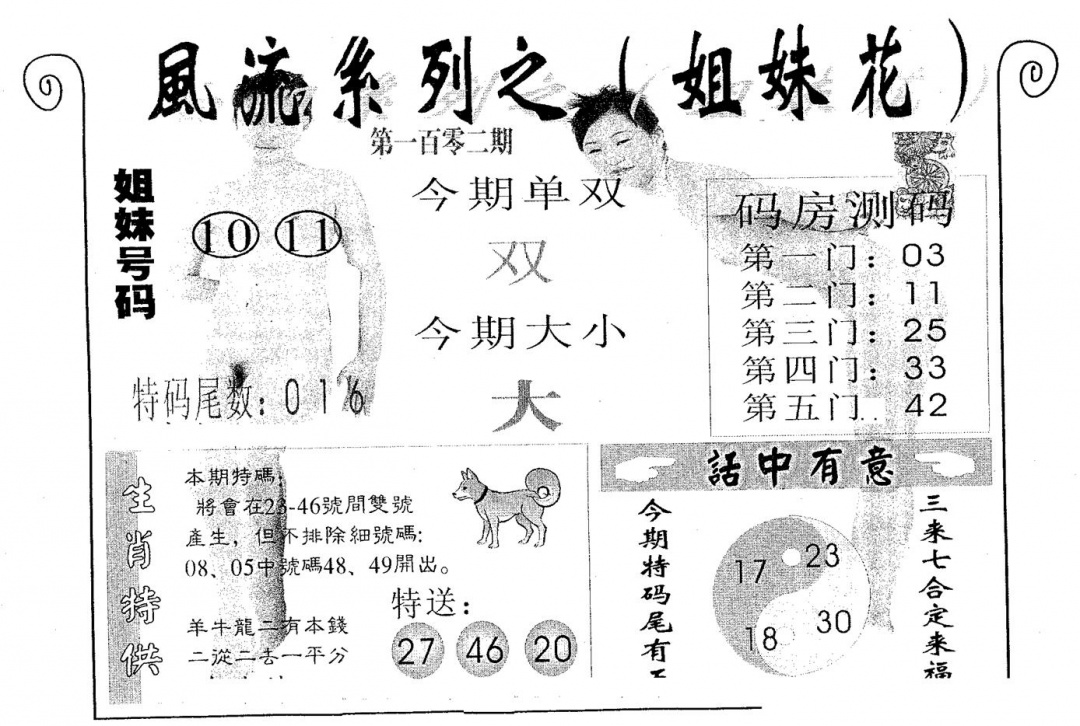 風流系列之（姐妹花）
第一百零二期
姐妹号码
10 11
特码尾数：0 1 6
今期单双
双
今期大小
大
码房测码
第一门：03
第二门：11
第三门：25
第四门：33
第五门 42
生肖特供
本期特碼：
將會在23-46號間雙號
產生，但不排除細號碼：
08、05中號碼48、49開出。
羊牛龍二有本錢
二從二去一平分
特送：
27 46 20
話中有意
今期特码尾有
17 23
18 30
三来七合定来福